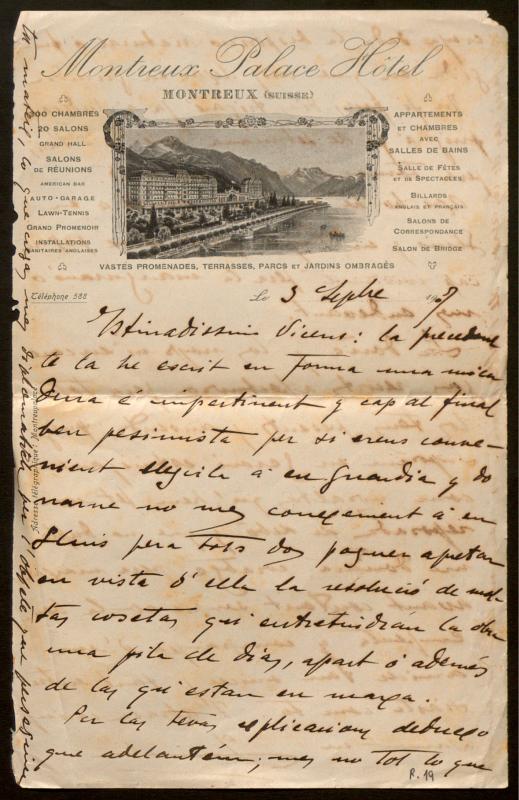 Montreux Palace Hôtel
MONTREUX (SUISSE)
300 CHAMBRES
20 SALONS
GRAND HALL
SALONS
DE RÉUNIONS
AMERICAN BAR
AUTO-GARAGE
LAWN-TENNIS
GRAND PROMENOIR
INSTALLATIONS
SANITAIRES ANGLAISES
APPARTEMENTS
ET CHAMBRES
AVEC
SALLES DE BAINS
SALLE DE FÊTES
ET DE SPECTACLES
BILLARDS
ANGLAIS ET FRANÇAIS
SALONS DE
CORRESPONDANCE
SALON DE BRIDGE
VASTES PROMENADES, TERRASSES, PARCS ET JARDINS OMBRAGÉS
Téléphone 588
Le 3 Septbre 190
Estimadissim Vicens: la preceden
te la he escrit en forma una mica
dura é impertinent y cap al final
ben pesimista per si creus conve-
nient llegirla á en Guardia y do
narne no mes coneixement á en
Lluis pera tots dos poguer apretar
en vista d'ella la resolució de mol
tas cosetas qui entretindrán la obra
una pila de dias, apart ó ademés
de las qui estan en marxa.
Per las tevas esplicacions dedueço
que adelantém; mes no tot lo que
Adresse télégraphique: Montreuxpalace
la mateix, lo que caigs mes diplomatich per l'objecte que persegueix
R. 19